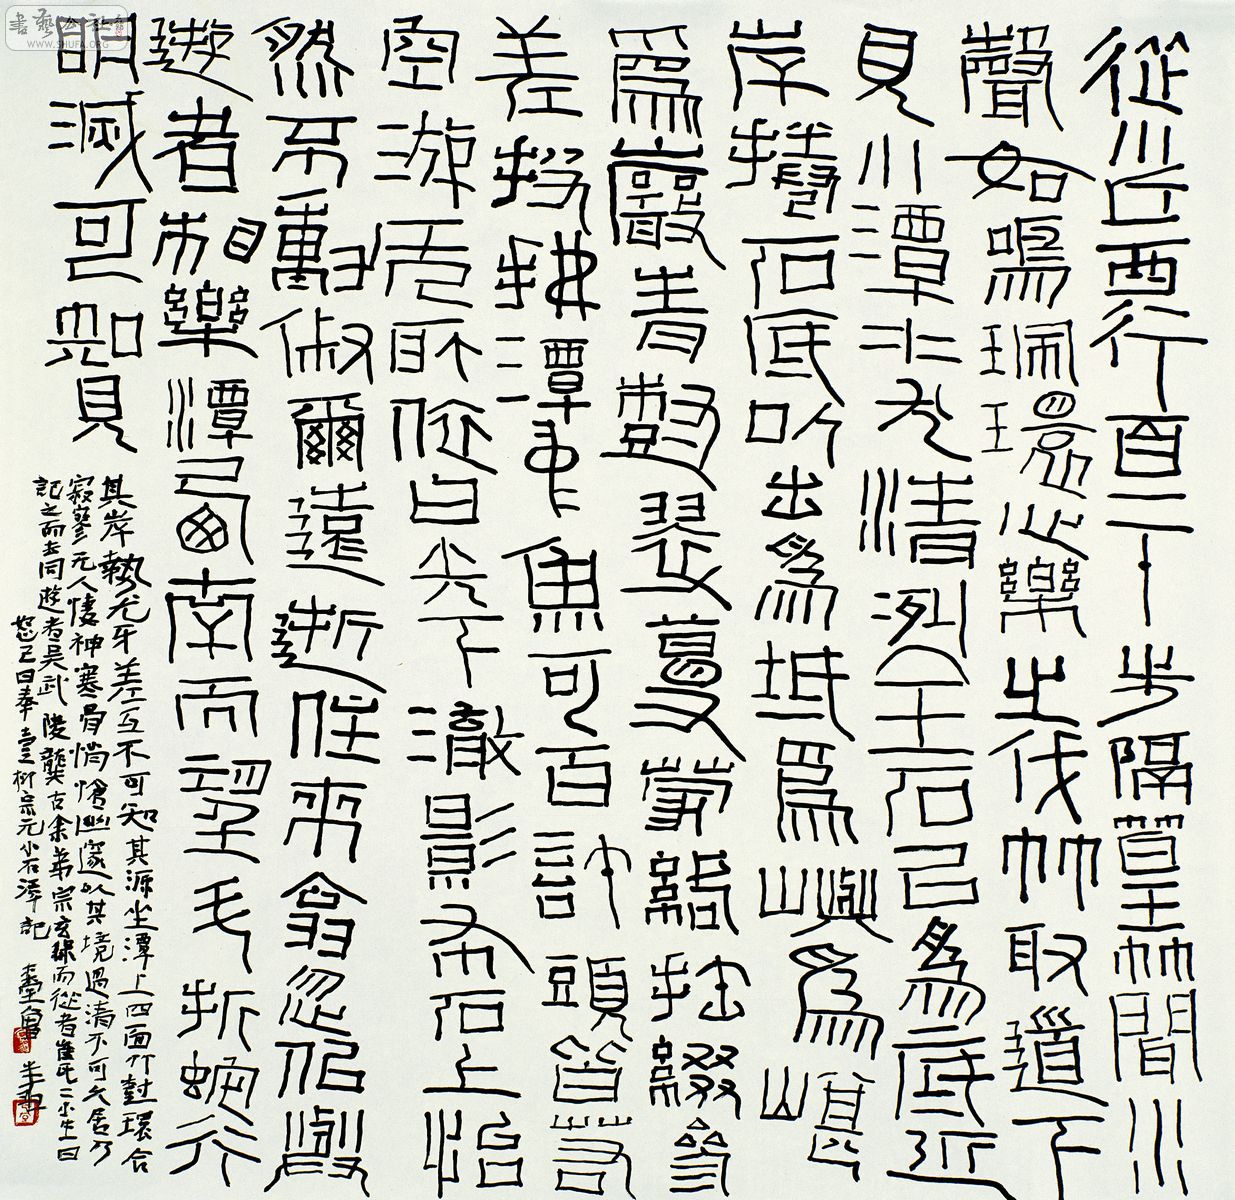 從小丘西行百二十步隔篁竹聞水
聲如鳴珮環心樂之伐竹取道下
見小潭水尤清洌全石以為底近
岸卷石底以出為坻為嶼為嵁
為巖青樹翠蔓蒙絡搖綴參
差披拂潭中魚可百許頭皆若
空游无所依日光下澈影布石上怡
然不動俶爾遠逝往來翕忽似與
遊者相樂潭西南而望斗折蛇行
明滅可見
其岸勢犬牙差互不可知其源坐潭上四面竹樹環合
寂寥无人悽神寒骨悄愴幽邃以其境過清不可久居乃
記之而去同遊者吳武陵龔古余弟宗玄隸而從者崔氏二小生曰
恕己曰奉壹柳宗元小石潭記
書藝公社
WWW.SHUFA.ORG